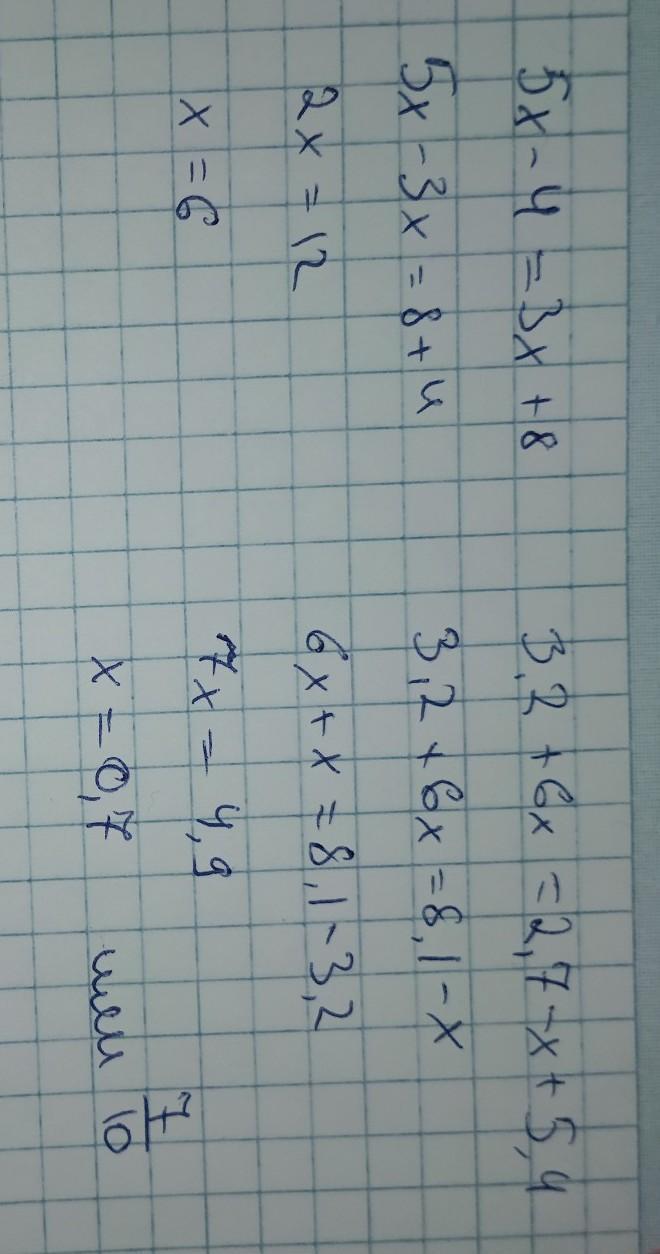 5x - 4 = 3x + 8
5x - 3x = 8 + 4
2x = 12
x = 6
3,2 + 6x = 2,7 - x + 5,4
3,2 + 6x = 8,1 - x
6x + x = 8,1 - 3,2
7x = 4,9
x = 0,7 или 7/10